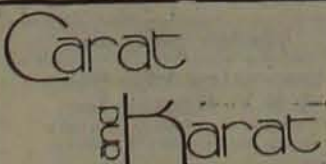 Carat
and Karat